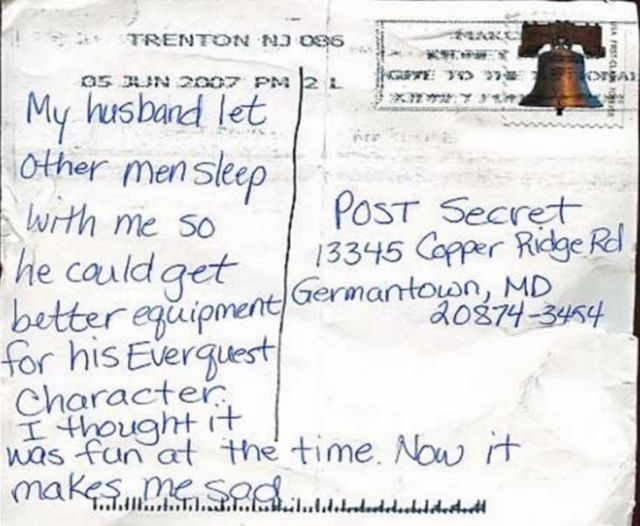 TRENTON NJ 086
05 JUN 2007 PM 2 L
My husband let
other men sleep
with me so
he could get
better equipment
for his Everquest
Character.
I thought it
was fun at the time. Now it
makes me sad
POST Secret
13345 Copper Ridge Rd
Germantown, MD
20874-3454